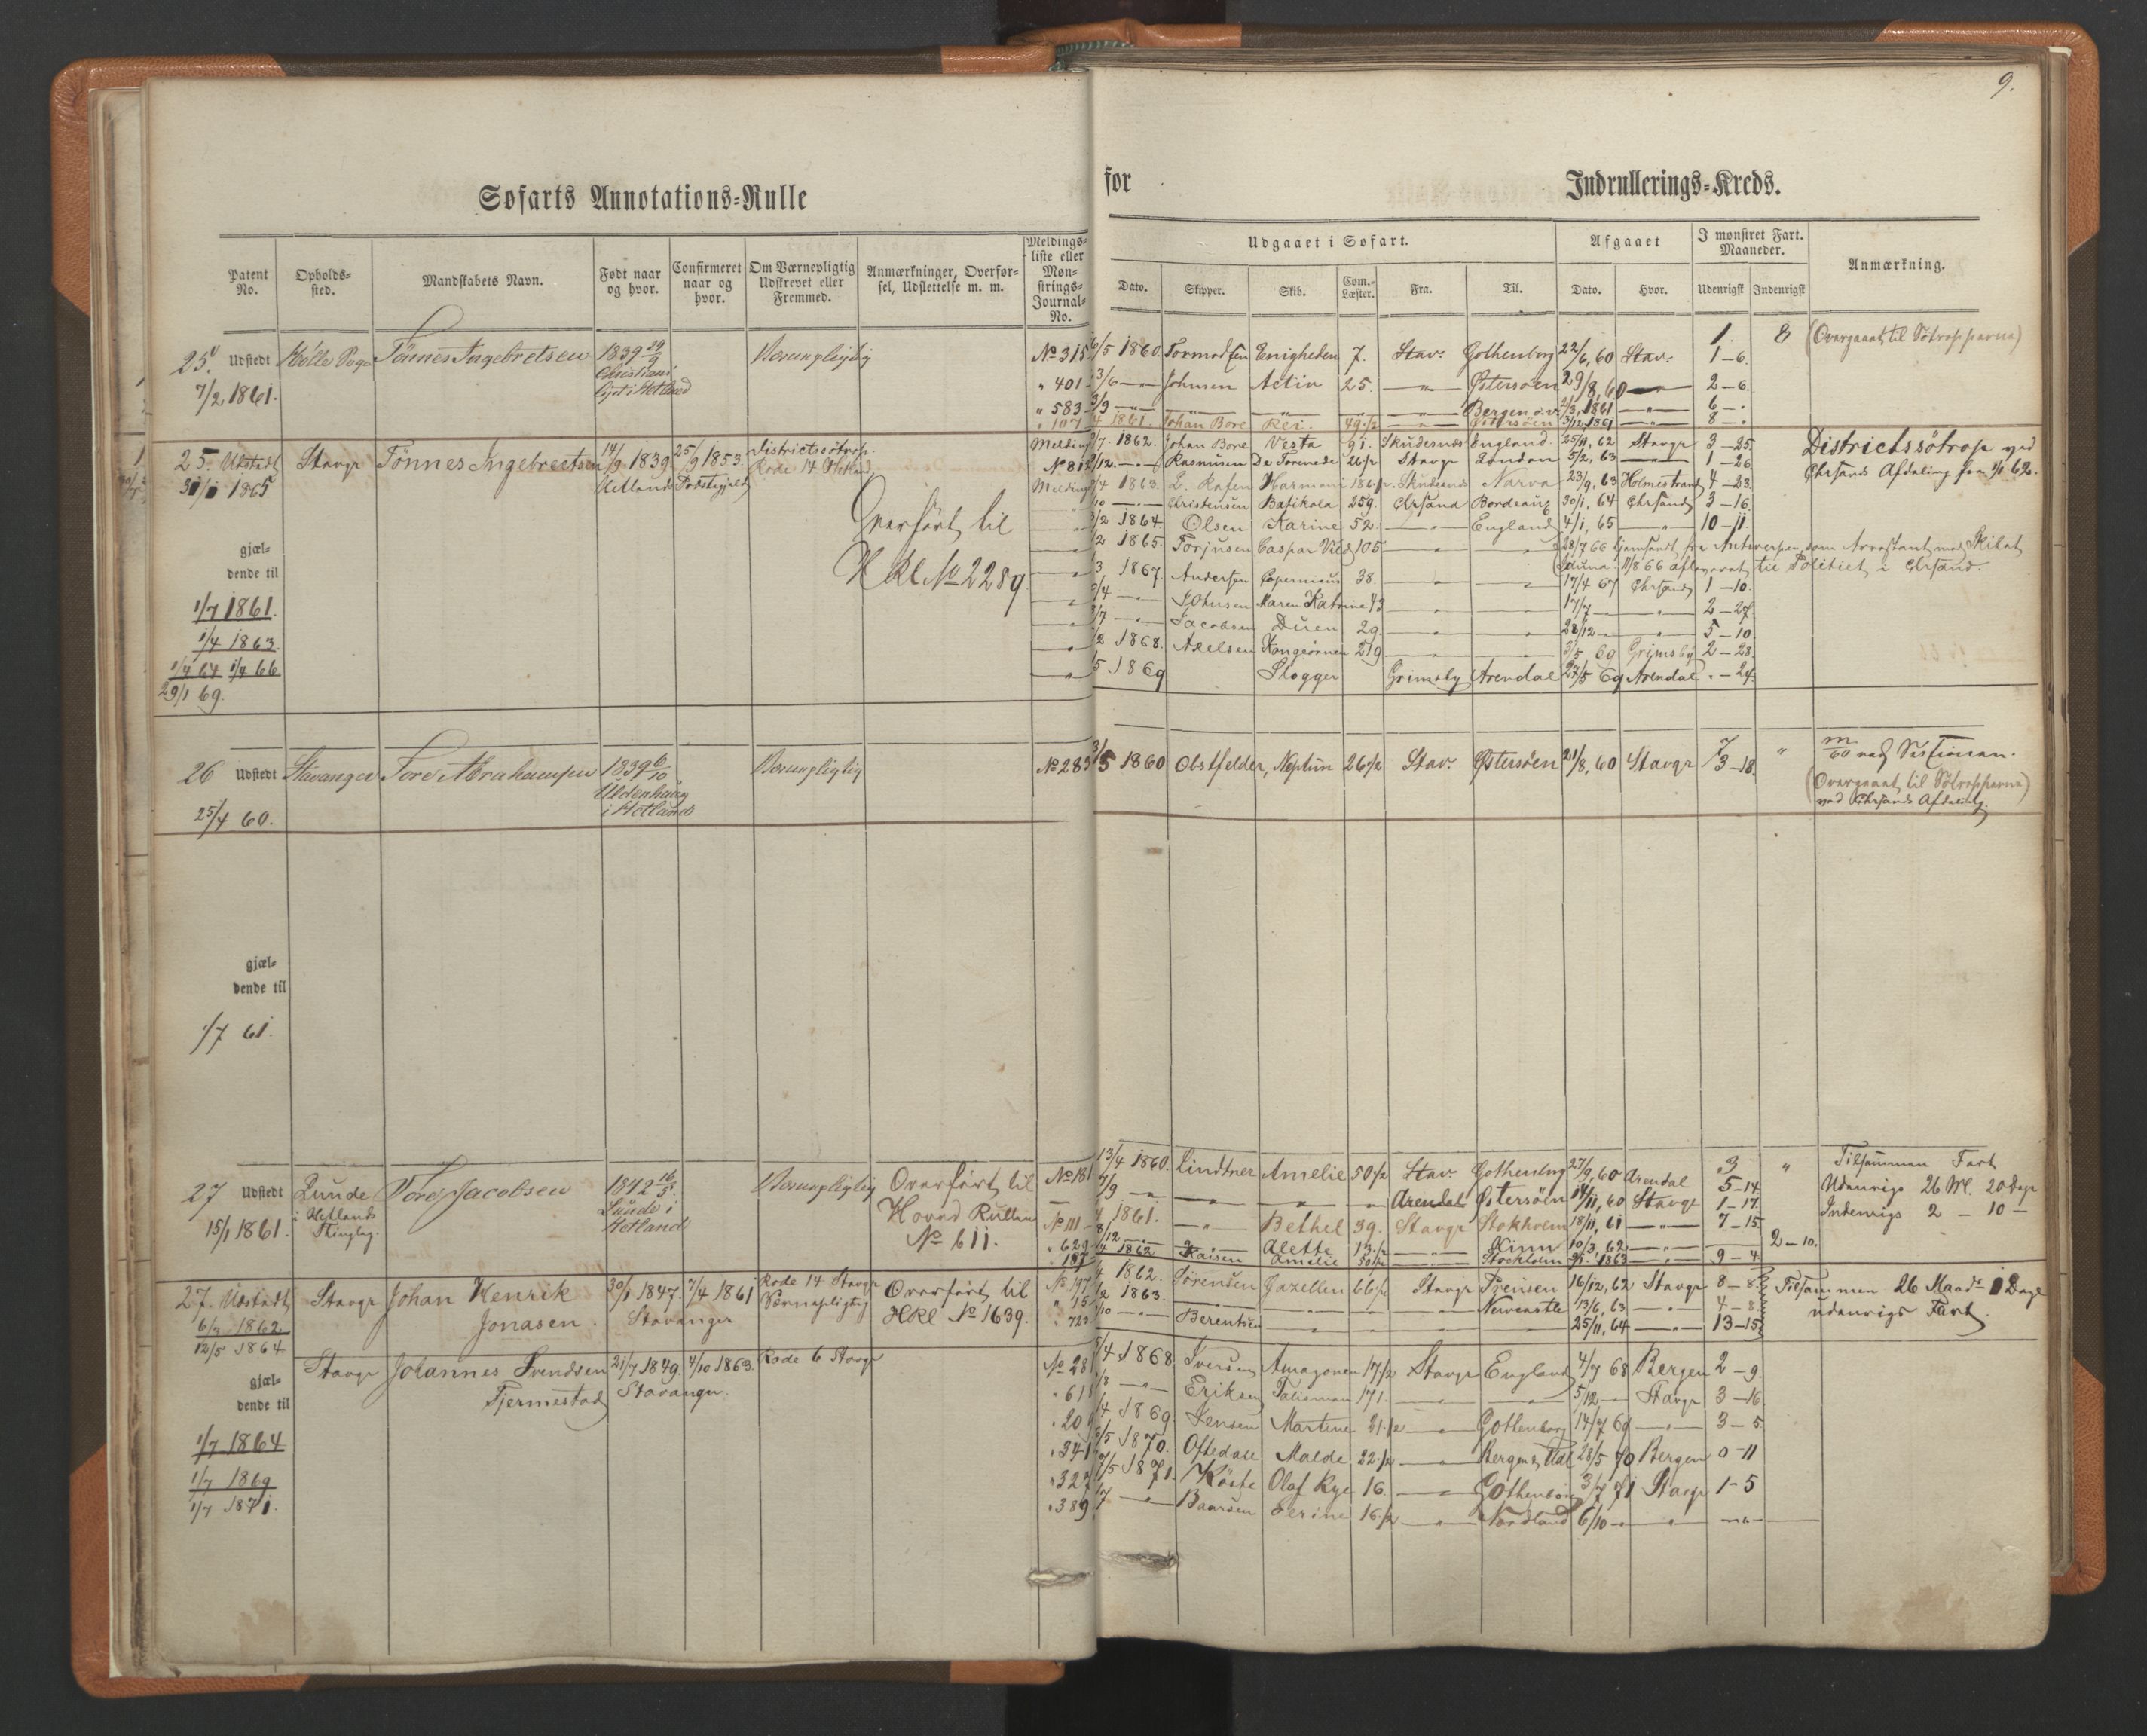 9.
Søfarts Annotations-Rulle
for Indrullerings-Kreds.
Patent No.
Opholds-sted.
Mandskabets Navn.
Født naar og hvor.
Confirmeret naar og hvor.
Om Værnepligtig Udskrevet eller Fremmed.
Anmærkninger, Overfør-sel, Udslettelse m. m.
Meldings-liste eller Møn-strings-Journal-No.
Udgaaet i Søfart.
Dato.
Skipper.
Skib.
Com.-Læster.
Fra.
Til.
Afgaaet
Dato.
Hvor.
I mønstret Fart. Maaneder.
Udenrigst
Indenrigst
Anmærkning.
25. Udstedt Tönnes Ingebretsen 1839 29/9 Værnepligtig No 315 1860. Tormodsen Enigheden 7. Stav. Gothenborg 22/6, 60 Stav. 1 - 6. 8 (Overgaaet til
7/2 1861. i Hetland " 401 3/6 Johnsen Activ 25. Østersöen 29/8, 60 2-6.
" 583 Bergen 1861 6 - "
" 107 1861. Johan Bore Rei. 49 1/2 Östersöen 3/12, 1861 8 - "
25. Udstedt Stavgr Tönnes Ingebrectsen 14/9 1839 25/9 1853. Districtssötrop. Melding 1862. Johan Bore Vesta 91. Skudesnæs England 25/11, 62 Stavgr 3-25. Districtssötrop ved
1865 Hetland Rode 14 Hetland No 812 /12. Rasmusen De Forenede 26 1/2 Stavgr London 5/2, 63 1-26 Chrsands Afdeling fra 1/1 62.
Melding /4 1863. Harmoni 186 1/2 Narva 23/9, 63 Holmestrand 4-23.
Christensen 259. Chrsand Bordeaux 30/1, 64 Chrsand 3-16.
Overfört til /2 1864 Olsen Karine 52. England 4/1, 65 10-11.
gjæl-
dende til
H Kl No 2289. /2 1865. Torjusen Caspar Vild 105 28/7 66 hjemsendt fra Antwerpen som Arrestant med Skibet
11/8 66 afleveret til Politiet i Chrsand.
3 1867. Andersen Copernicus 38. 17/4 67 Chrsand 1-10.
1/7 1861. /4 Johnsen Maren Katrine 43 17/7 2-27.
1/4 1863. /7 Jacobsen Duen 29. 28/12 5-10.
1/4 64 1/4 66. /2 1868. Axelsen Kongeörnen 219 Grimsby 2-28.
29/1 69. /5 1869 Slogger Grimsby Arendal 27/5 69 Arendal " - 24.
26 Udstedt Stavanger Tore Abrahamsen 1839 6/10 Værnepligtig No 283 1860 Obstfelder, Neptun 26 1/2 Stav. Østersöen 21/8, 60 Stavgr 3-18. "
i Hetland (Overgaaet til
25/4 60. ved Chrsands Afdeling.
gjæl-
dende til
1/7 61.
27 Udstedt Lunde Tore Jacobsen 1842 Værnepligtig Overfört til No 181 13/4 1860. Lindtner Amelie 50 1/2 Stav. Gothenborg 27/9, 60 Arendal 3 " Tilsammen Fart
15/1 1861. i Hetlands Thinglag. Lunde i Hetland Hoved Rullen /9 Arendal Østersöen 14/11, 60 Stavgr 5-14. Udenrigs 26 M. 20 Dage
No 611. No 111 1861. Bethel 39. Stavgr Stokholm 18/11, 61 1-17. Indenrigs 2 - 10 -
" 629 Alette 13 1/2 10/3, 62. 7-15. 2-10.
" 187 1862 Amelie 50 1/2 Stockholm 1863 9-4.
27. Udstedt Stavgr Johan Henrik 30/1 1847. 7/4 1861 Rode 14 Stavgr Overfört til No 197 1862. Sörensen Gazellen 66 1/2 Stavgr 16/12, 62 Stavgr 8-8. Tilsammen 26 Maad. 1 Dage
6/7 1862. Jonasen. Stavanger Værnepligtig HKl No 1639. " 15 1863. Newcastle 13/6, 63 4-8. udenrigs Fart.
12/5 1864. " 723 /10 Berentsen 25/11, 64 13-15.
Stavgr Johannes Svendsen 21/7 1849. 4/10 1863. Rode 6 Stavgr No 28 /4 1868. Iversen Amazonen 17 1/2 Stavgr England 4/7 68 Bergen 2-9.
gjæl-
dende til
Tjermestad Stavanger. " 618 Eriksen Talisman 171. 5/12 Stavgr 3-16.
" 209 /4 1869. Jensen Martine 21 1/2 Gothenborg 14/7 69 3-5.
1/7 1864 " 341 /5 1870. Oftedahl Malde 22 1/2 28/5 70 Bergen 0-11
1/7 1869 " 327 /5 1871. Olaf Rye 16. Gothenborg 3/7 71 Stavgr 1-5
1/7 1871. " 389 Baarsen 16 1/2 Nordland 6/10